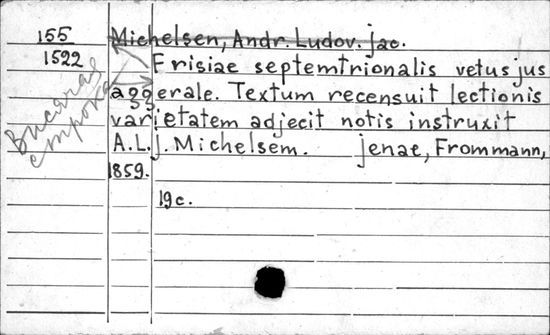 155 Michelsen, Andr. Ludov. jac.
1522 Frisiae septemtrionalis vetus jus
aggerale. Textum recensuit lectionis
varietatem adjecit notis instruxit
A.L.J. Michelsem. jenae, Frommann,
1859.
19 c.
строка